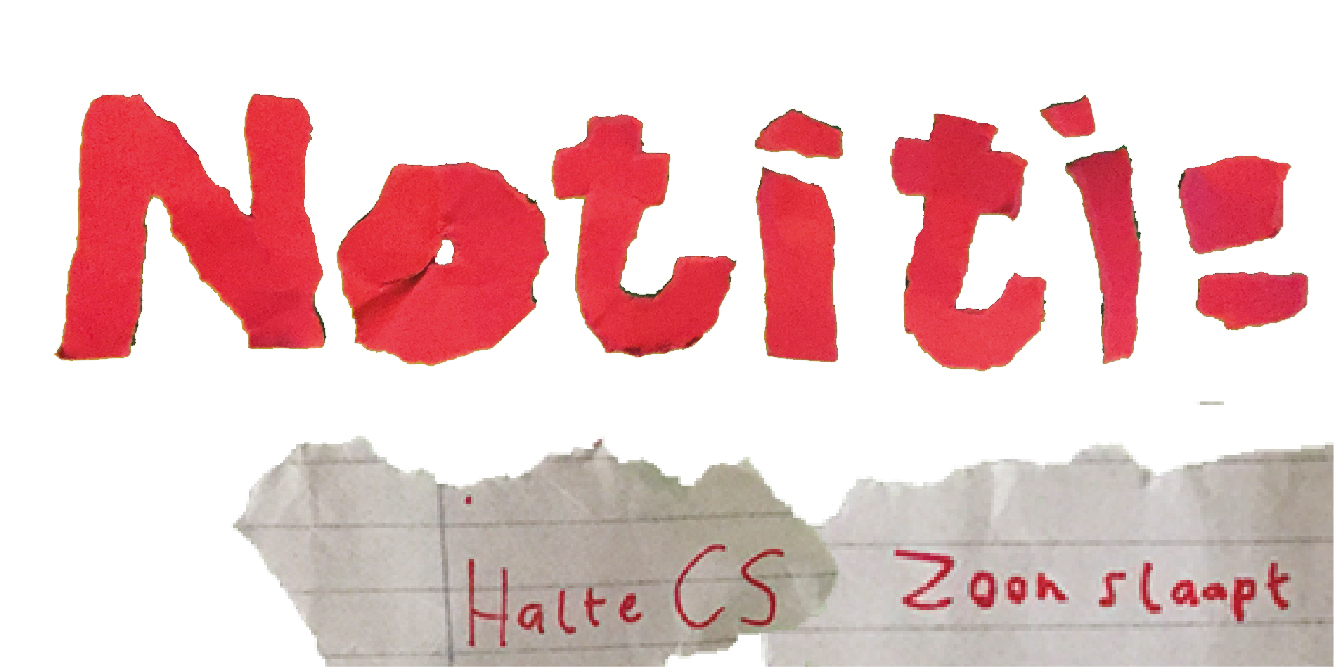 Notiti=
Halte CS Zoon slaapt